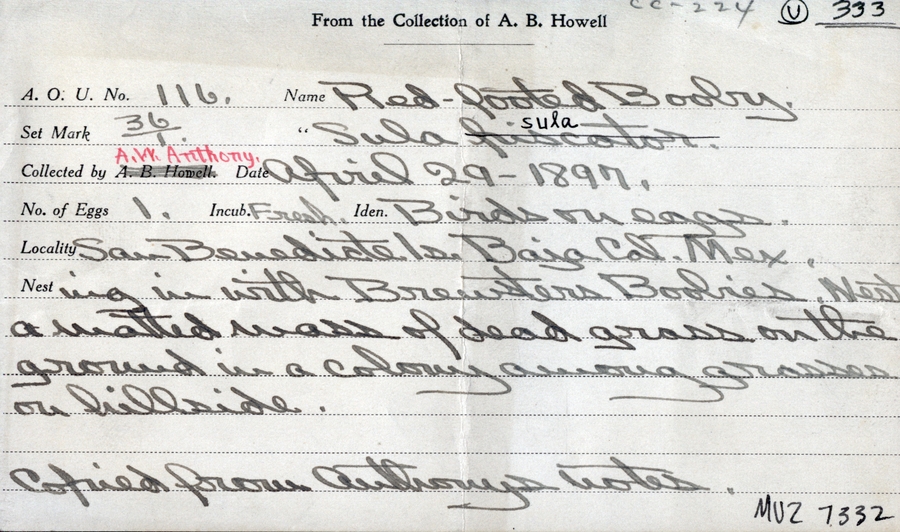 From the Collection of A. B. Howell
CC-224 U 333
A. O. U. No. 116. Name Red-footed Booby.
Set Mark 36/1. " Sula piscator. sula
A.W. Anthony.
Collected by A. B. Howell. Date April 29-1897.
No. of Eggs 1. Incub. Fresh. Iden. Birds on eggs.
Locality San Benedicte Is. Baja Cal. Mex.
Nest ing in with Brewsters Boobies. Nest
a matted mass of dead grass on the
ground in a colony among grasses
on hillside.
Copied from Anthonys notes.
MVZ 7332